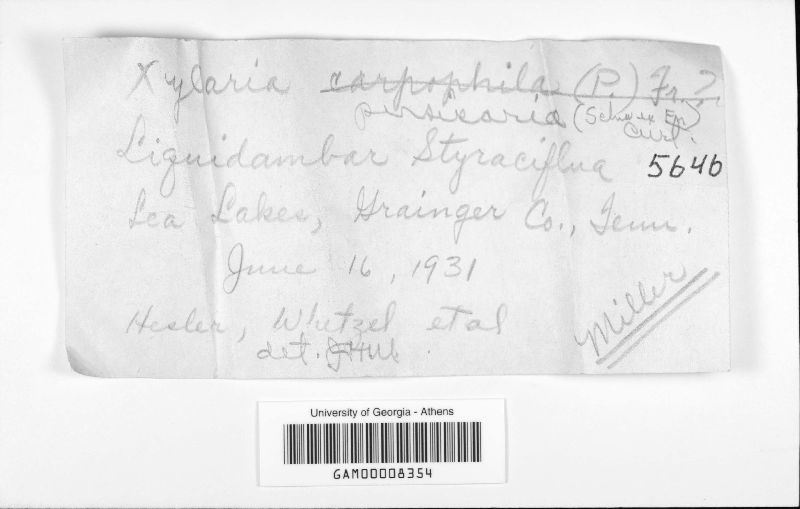 Xylaria carpophila (P.) Fr.?
persicaria (Schw. ex Fr.)
Curt.
Liquidambar Styraciflua
5646
Lea Lakes, Grainger Co., Tenn.
June 16, 1931
Hesler, Whetzel et al
det. JHM
Miller
University of Georgia - Athens
GAM00008354